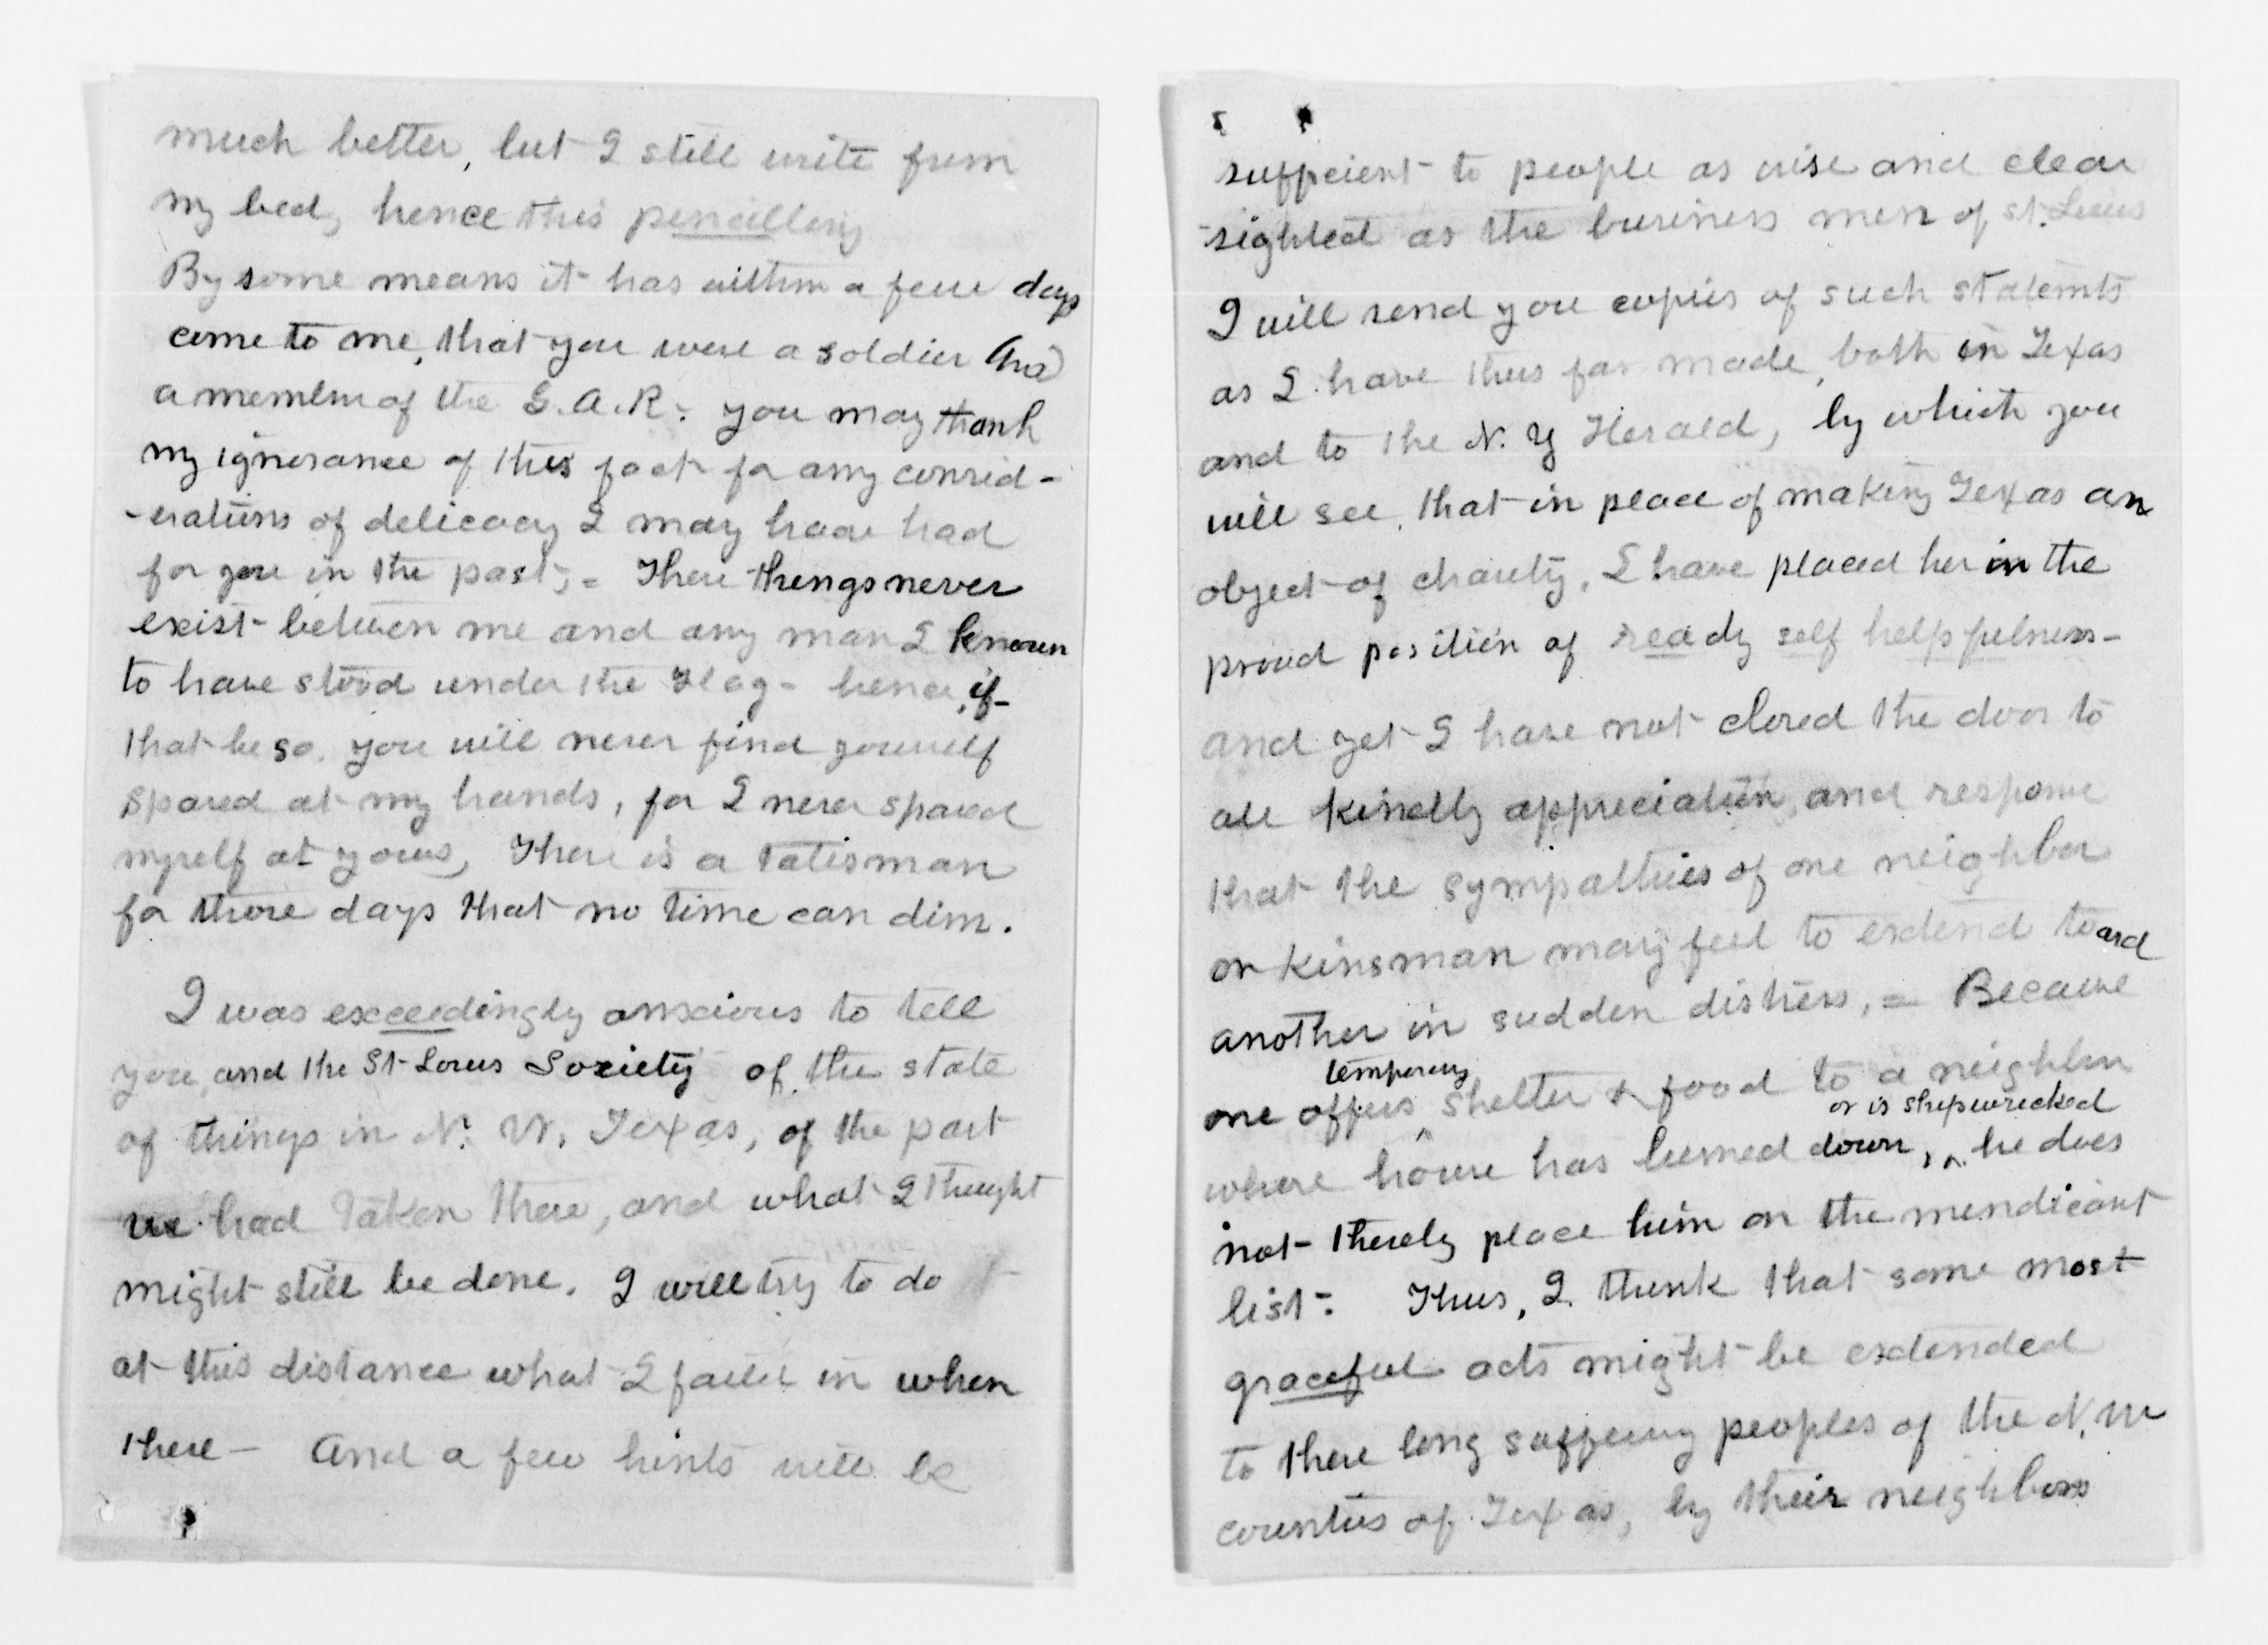 much better, but I still write from
my bed, hence this pencilling
By some means it has within a few days
come to me, that you were a soldier and
a member of the G.A.R. You may thank
my ignorance of this fact for any consid-
-erations of delicacy I may have had
for you in the past, = These things never
exist between me and any man I known
to have stood under the Flag - hence, if -
that be so. you will never find yourself
spared at my hands, for I never spared
myself at yours, There is a talisman
for those days that no time can dim.
I was exceedingly anxious to tell
you, and the St Louis Society of the state
of things in N. W. Texas, of the part
we had taken there, and what I thought
might still be done. I will try to do
at this distance what I failed in when
there - And a few hints will be
sufficient to people as wise and clear
-sighted as the business men of St. Louis
I will send you copies of such statemts
as I have thus far made, both in Texas
and to the N. Y Herald, by which you
will see, that in place of making Texas an
object of charity, I have placed her in the
proud position of ready self helpfulness -
and yet I have not closed the door to
all kindly appreciation, and response
that the sympathies of one neighbor
or kinsman may feel to extend toard
another in sudden distress, = Because
temporary
one offers shelter & food to a neighbor
or is shipwrecked
whose house has burned down, he does
not thereby place him on the mendicant
list - Thus, I think that some most
graceful acts might be extended
to these long suffering peoples of the N. W
counties of Texas, by their neighbors